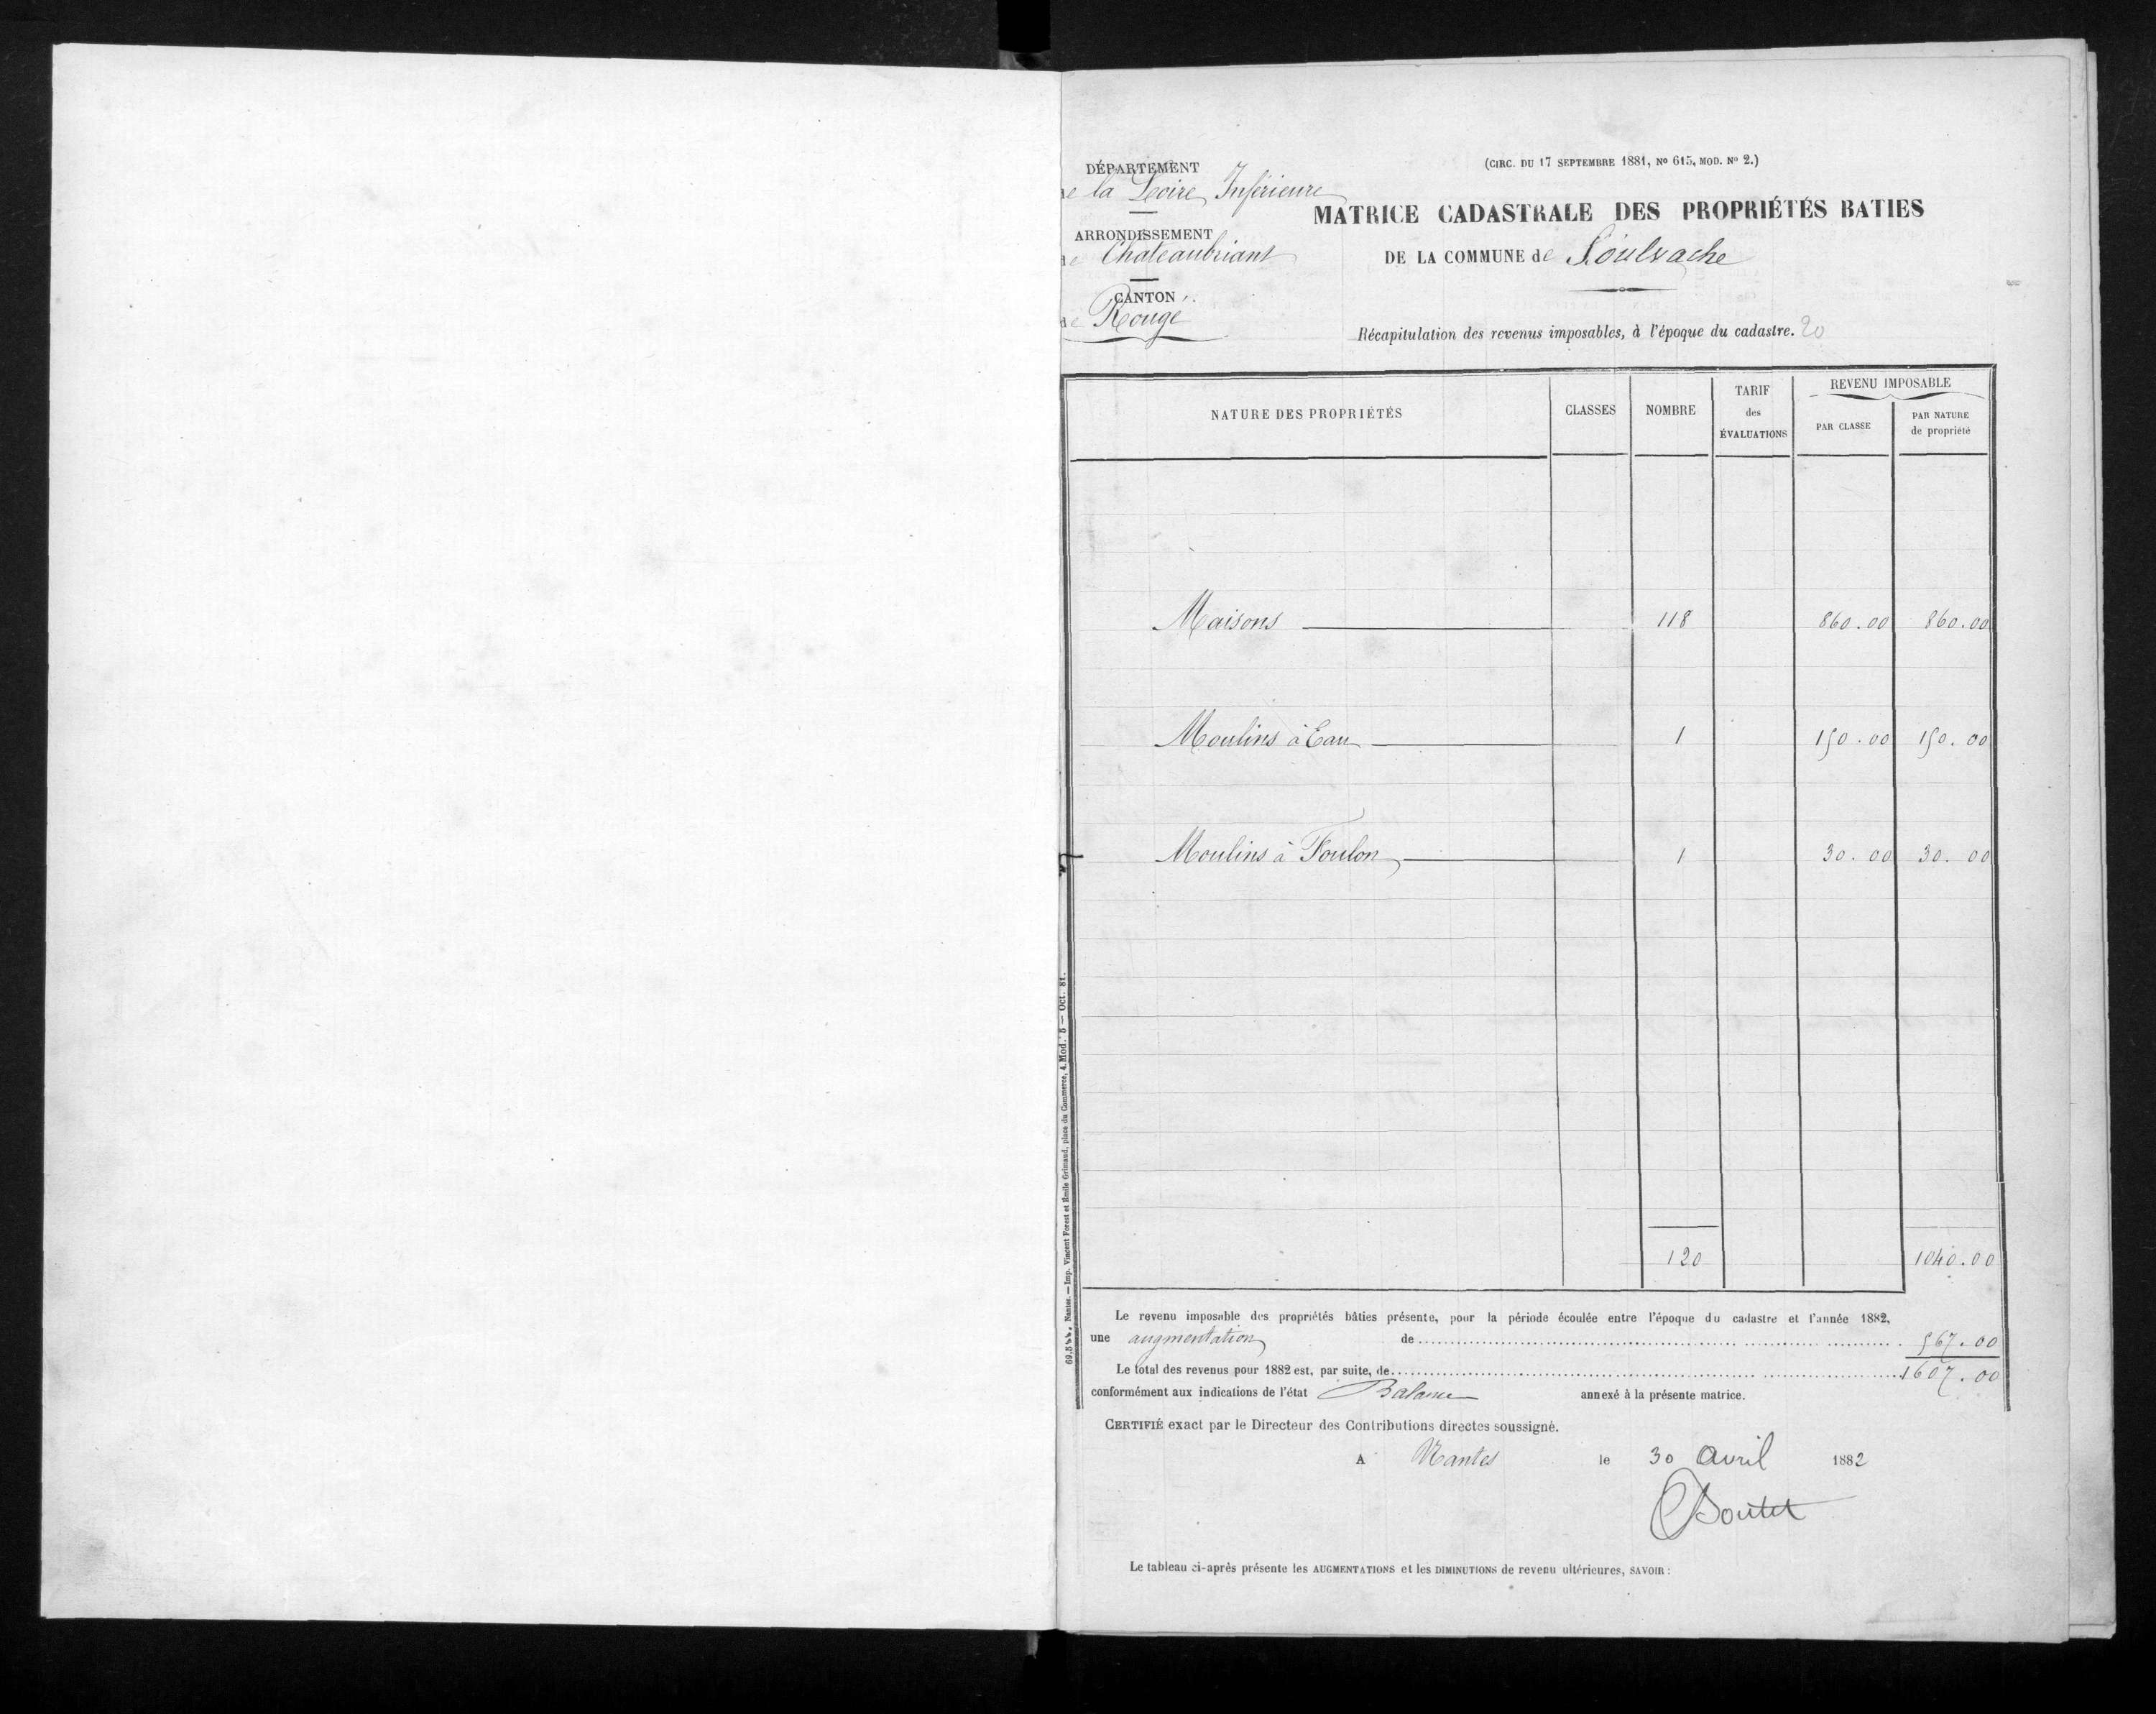 (CIRC. DU 17 SEPTEMBRE 1881, No 615, MOD. No 2.)
DÉPARTEMENT
de la Loire Inférieure
ARRONDISSEMENT
de Chateaubriant
CANTON
de Rougé
MATRICE CADASTRALE DES PROPRIÉTÉS BATIES
DE LA COMMUNE de Soulvache
Récapitulation des revenus imposables, à l'époque du cadastre. 20
NATURE DES PROPRIÉTÉS CLASSES NOMBRE TARIF des ÉVALUATIONS REVENU IMPOSABLE PAR CLASSE PAR NATURE de propriété
Maisons 118 860.00 860.00
Moulins à Eau 1 150.00 150.00
Moulins à Foulon 1 30.00 30.00
120 1040.00
Le revenu imposable des propriétés bâties présente, pour la période écoulée entre l'époque du cadastre et l'année 1882,
une augmentation de 567.00
Le total des revenus pour 1882 est, par suite, de 1607.00
conformément aux indications de l'état Balance annexé à la présente matrice.
CERTIFIÉ exact par le Directeur des Contributions directes soussigné.
A Nantes le 30 avril 1882
Boutet
Le tableau ci-après présente les AUGMENTATIONS et les DIMINUTIONS de revenu ultérieures, SAVOIR :
Nantes. — Imp. Vincent Forest et Emile Grimaud, place du Commerce, 4. Mod. 5 — Oct. 81.